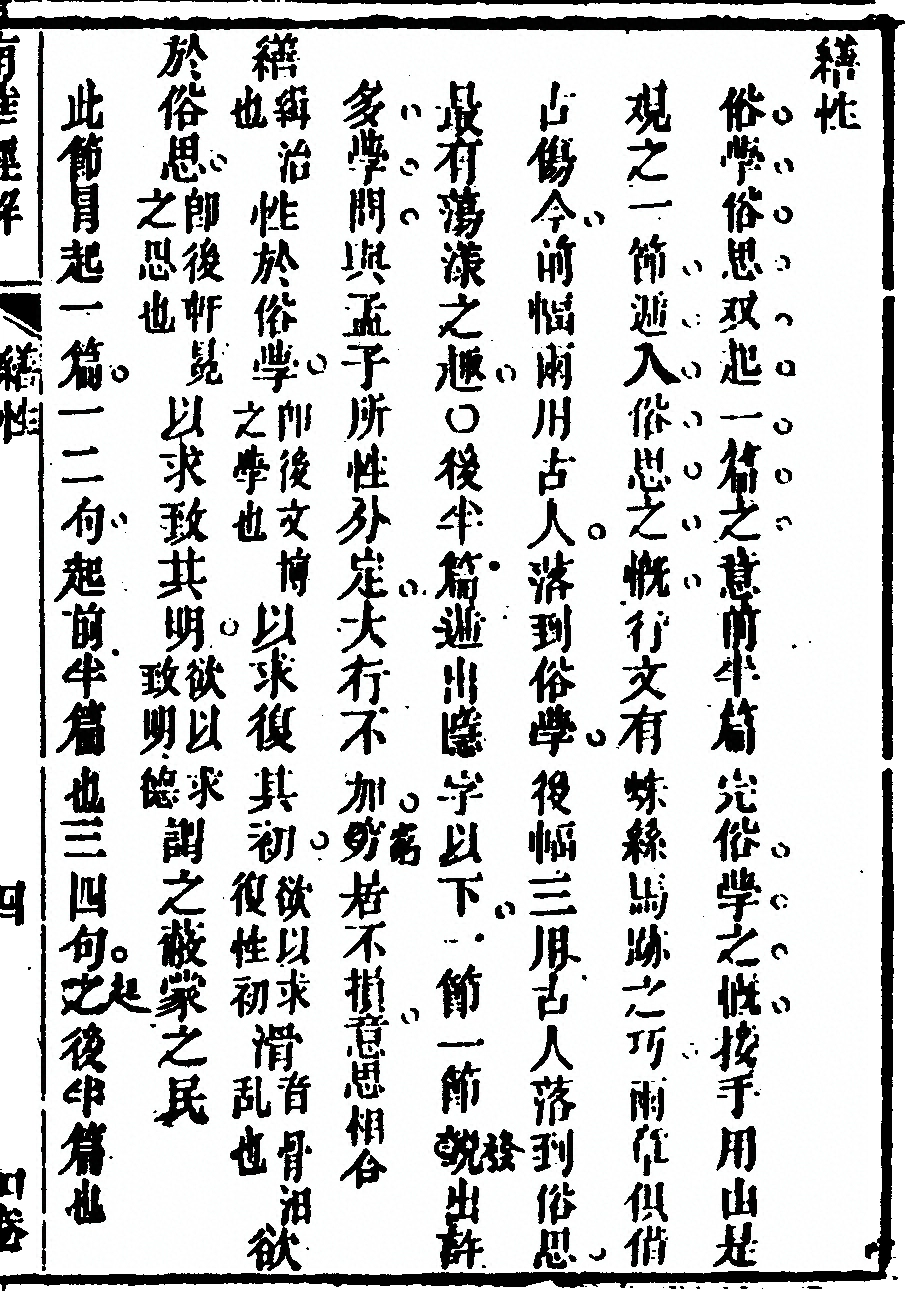 繕性
俗學俗思双起一篇之意前半篇完俗學之慨接手用由是
观之一節遞入俗思之慨行文有蛛絲馬跡之巧兩岸俱借
古傷今前幅兩用古人落到俗學後幅三用古人落到俗思
最有蕩漾之趣〇後半篇遞出隱字以下一節一節說發出許
多學問與孟子所性分定大行不加窮居不損意思相合
繕緝治也性於俗學即後文博之學也以求復其初欲以求復性初滑音骨汨乱也欲
於俗思即後軒冕之思也以求致其明欲以求致明德謂之蔽蒙之民
此節冒起一篇一二句起前半篇也三四句之起後半篇也
南華經解
繕性
四
四卷